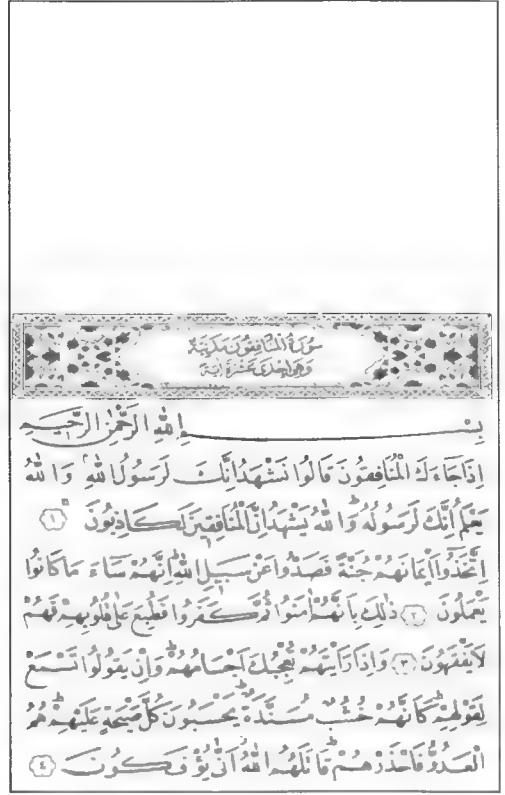 سُورَةُ الْمُنَافِقُونَ مَدَنِيَّةٌ
وَهِيَ اِحْدٰى عَشْرَةَ اٰيَةً
بِسْـــمِ اللّٰهِ الرَّحْمٰنِ الرَّحِيمِ
اِذَا جَٓاءَكَ الْمُنَافِقُونَ قَالُوا نَشْهَدُ اِنَّكَ لَرَسُولُ اللّٰهِۢ وَاللّٰهُ
يَعْلَمُ اِنَّكَ لَرَسُولُهُۜ وَاللّٰهُ يَشْهَدُ اِنَّ الْمُنَافِقِينَ لَكَاذِبُونَۚ ﴿١﴾
اِتَّخَذُٓوا اَيْمَانَهُمْ جُنَّةً فَصَدُّوا عَنْ سَبِيلِ اللّٰهِۜ اِنَّهُمْ سَٓاءَ مَا كَانُوا
يَعْمَلُونَ ﴿٢﴾ ذٰلِكَ بِاَنَّهُمْ اٰمَنُوا ثُمَّ كَفَرُوا فَطُبِعَ عَلٰى قُلُوبِهِمْ فَهُمْ
لَا يَفْقَهُونَ ﴿٣﴾ وَاِذَا رَاَيْتَهُمْ تُعْجِبُكَ اَجْسَامُهُمْۜ وَاِنْ يَقُولُوا تَسْمَعْ
لِقَوْلِهِمْۜ كَاَنَّهُمْ خُشُبٌ مُسَنَّدَةٌۜ يَحْسَبُونَ كُلَّ صَيْحَةٍ عَلَيْهِمْۜ هُمُ
الْعَدُوُّ فَاحْذَرْهُمْۜ قَاتَلَهُمُ اللّٰهُۘ اَنّٰى يُؤْفَكُونَ ﴿٤﴾